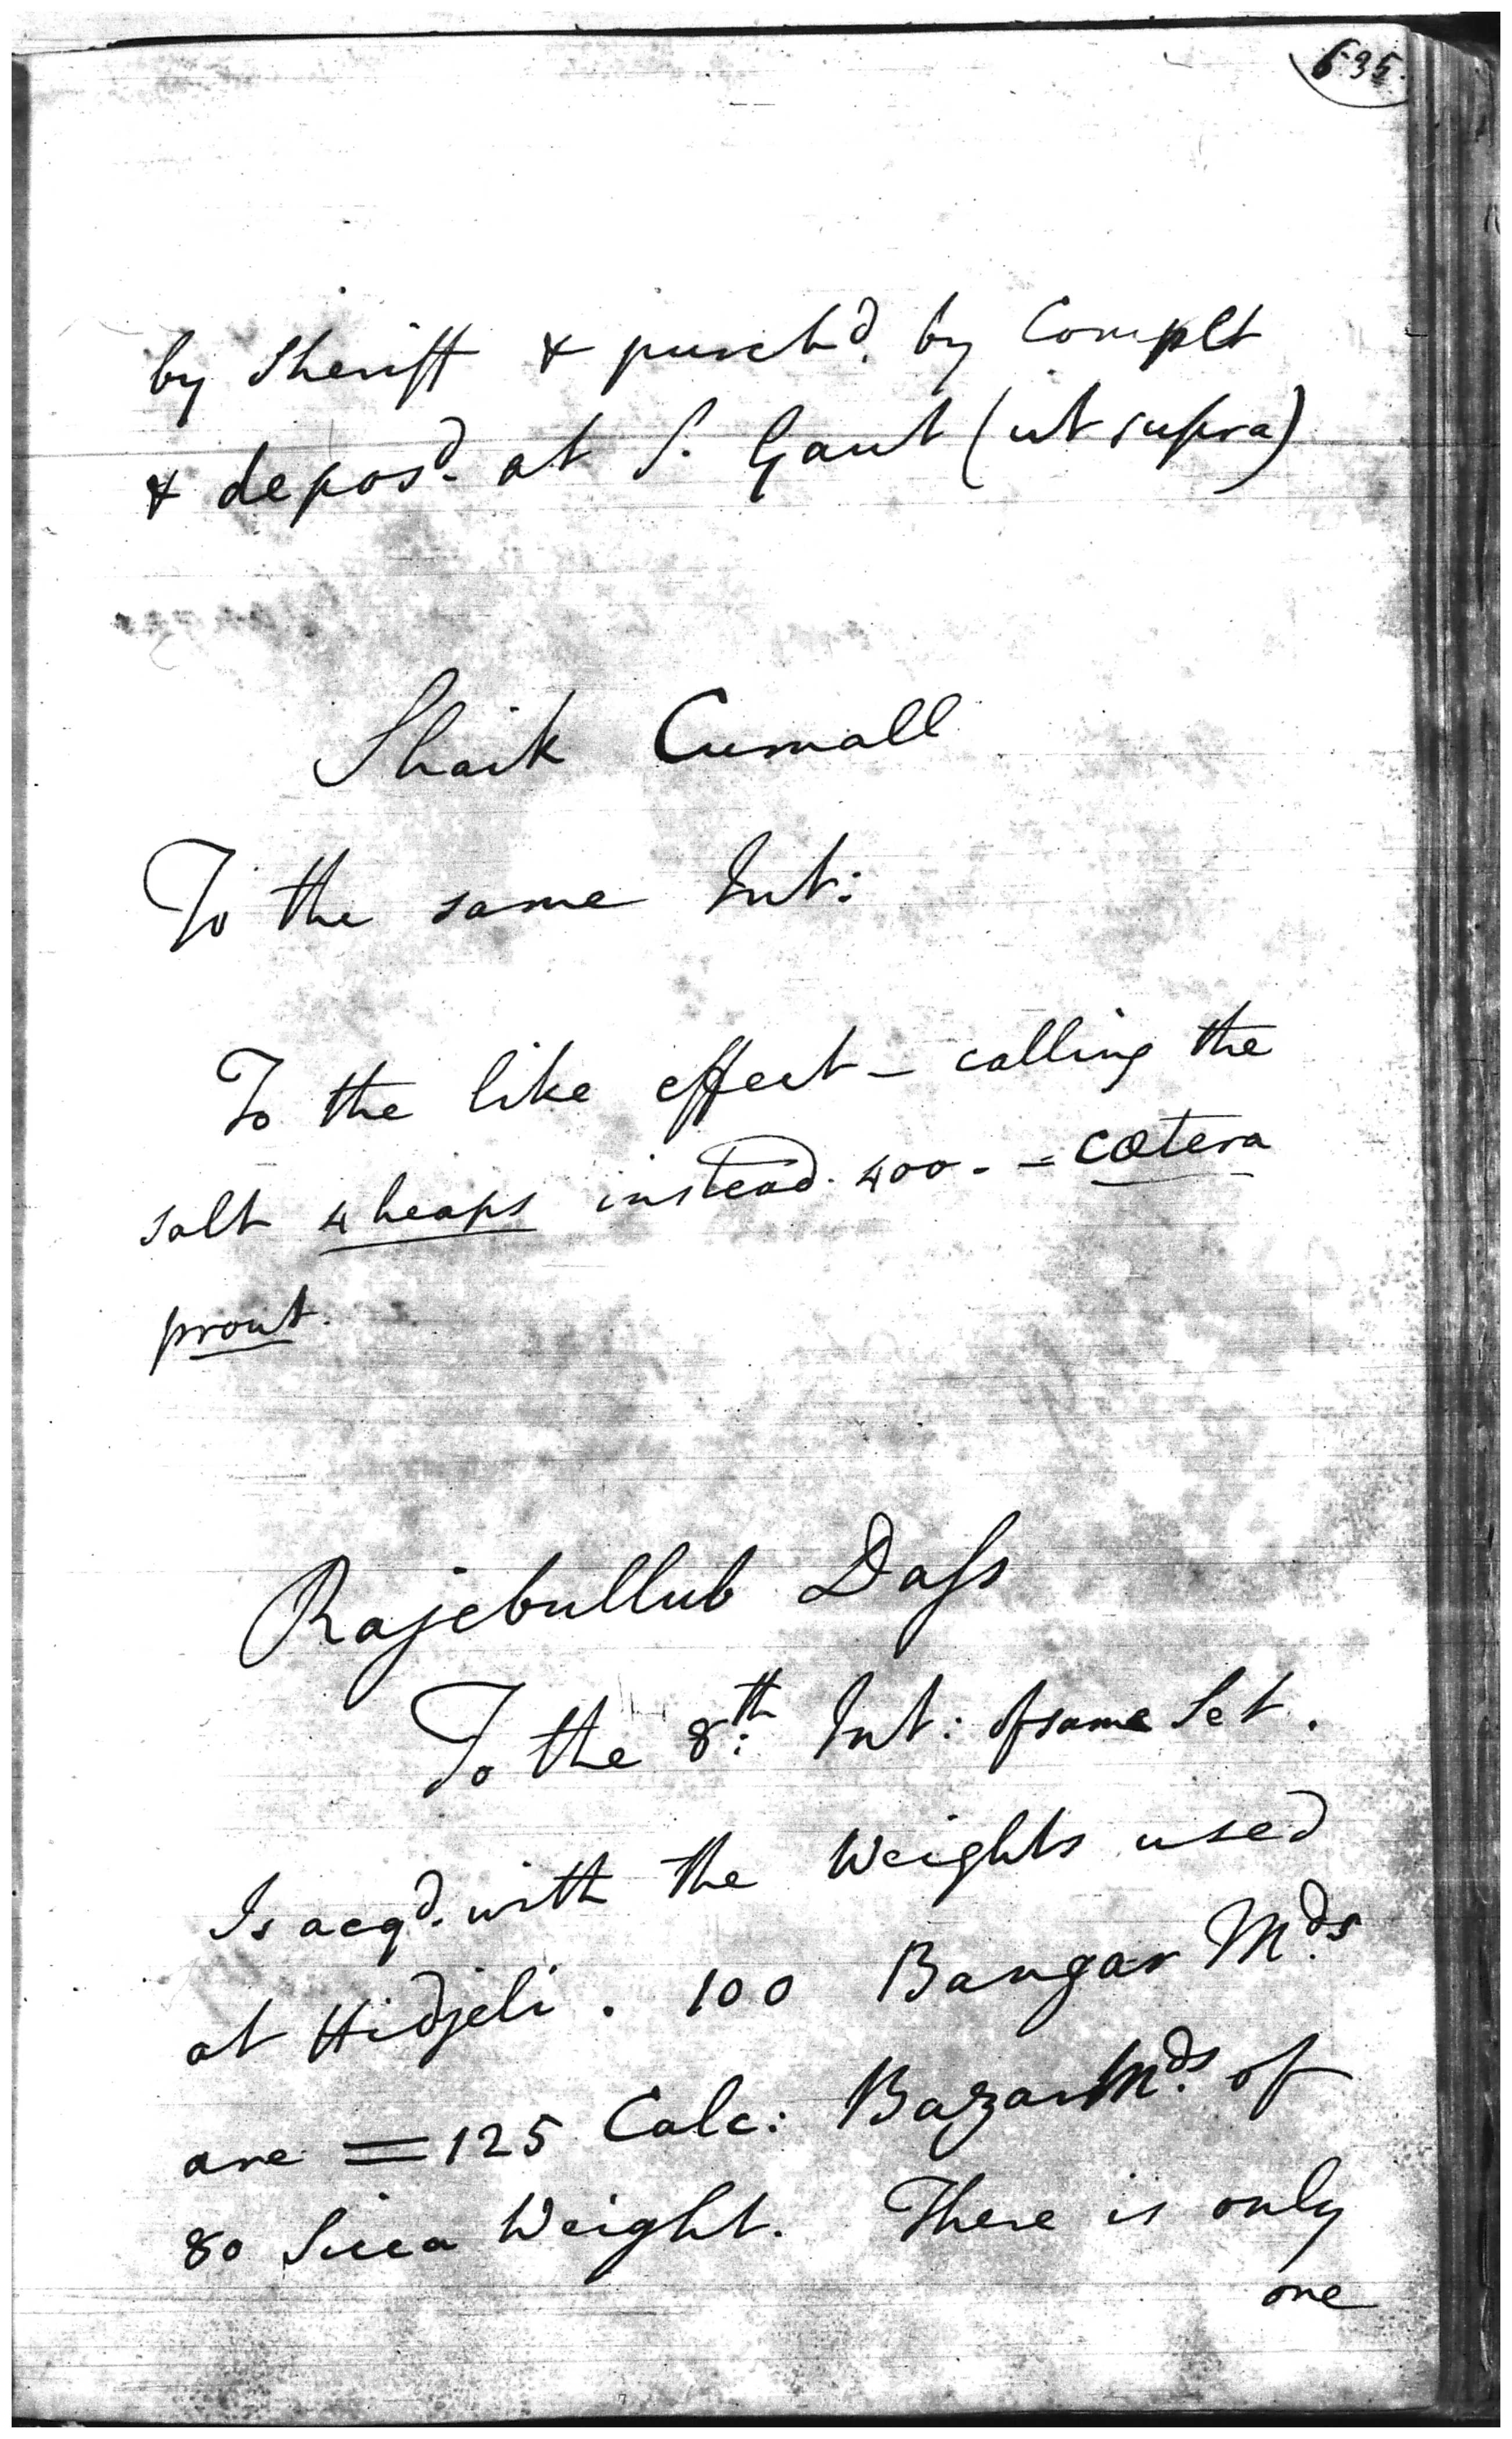 635.
by Sheriff & purchd. by Complt
& deposd. at S. Gaut (ut supra)
Shaik Cumall
To the same Int:
To the like effect - calling the
salt 4 heaps instead. 400. - cætera
prout.
Rajebullub Dass
To the 8th: Int: of same Set.
Is acqd. with the Weights used
at Hidjeli. 100 Bangar Mds.
are = 125 Calc: Bazar Mds. of
80 Sicca Weight. There is only
one